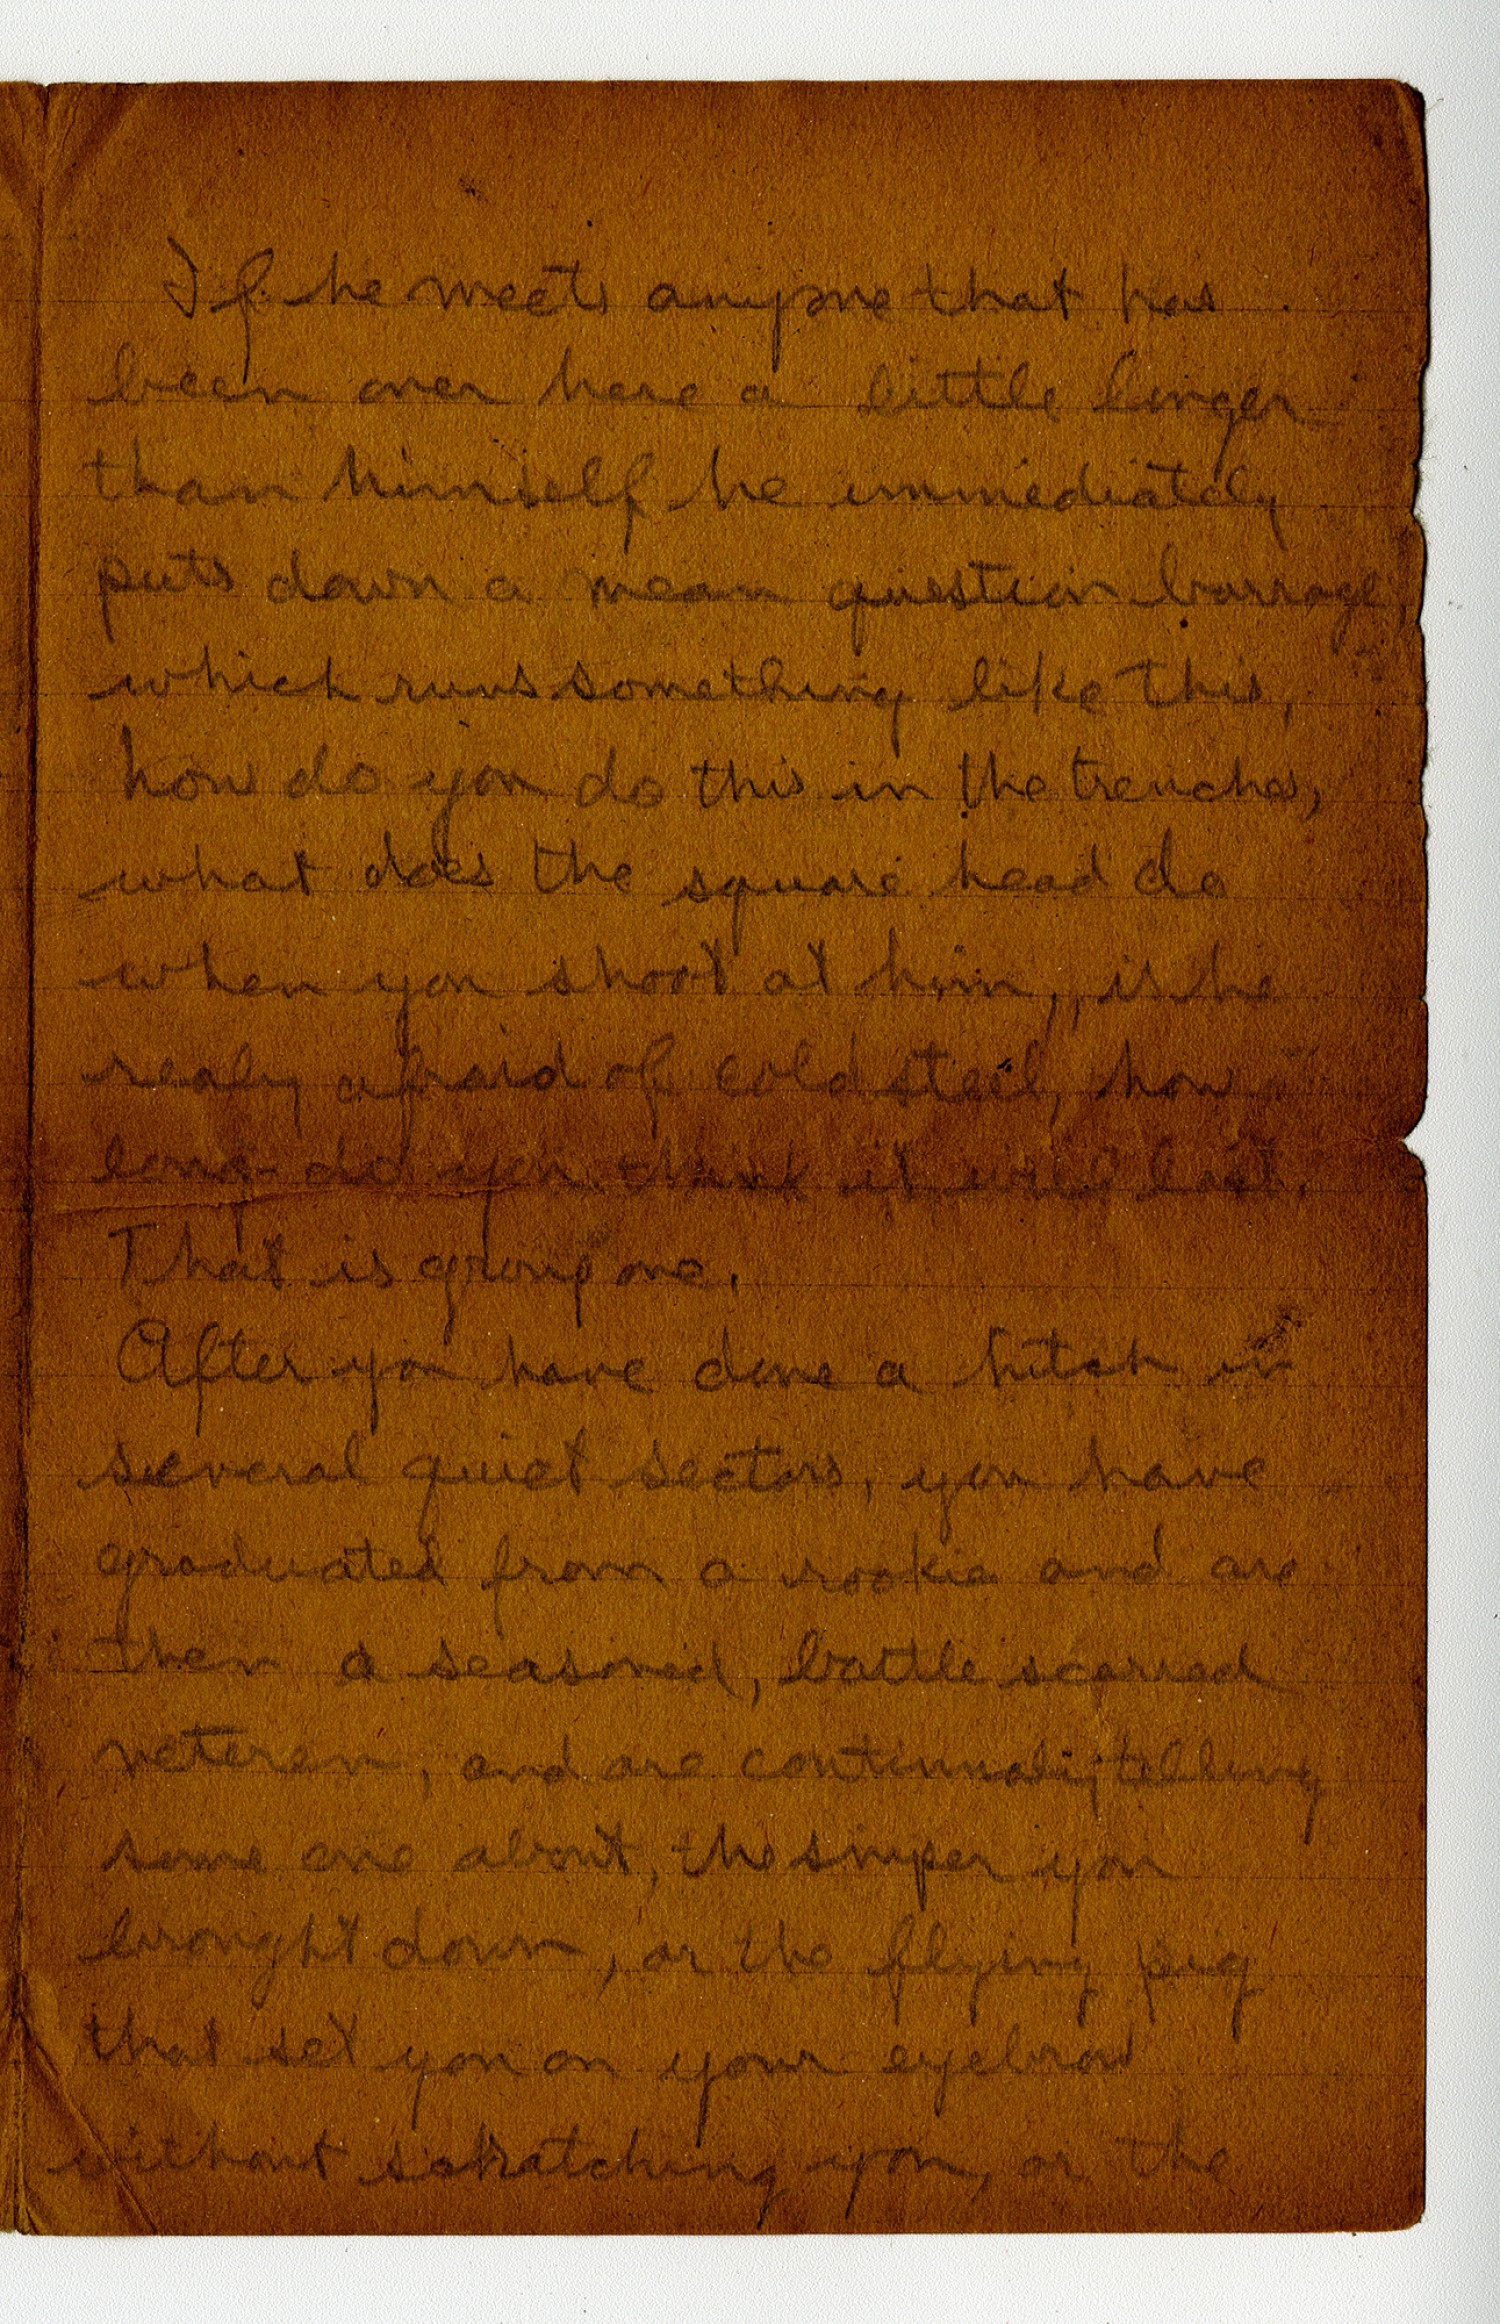 If he meets anyone that has
been over here a little longer
than himself he immediately
puts down a mean question barrage,
which runs something like this,
how do you do this in the trenches,
what does the square head do
when you shoot at him, is he
realy afraid of cold steel, how
long do you think it will last.
That is group one.
After you have done a hitch in
several quiet sectors, you have
graduated from a rookie and are
then a seasoned, battle scarred
veteran, and are continualy telling
some one about, the sniper you
brought down, or the flying pig
that set you on your eyebrow
without scratching you, or the